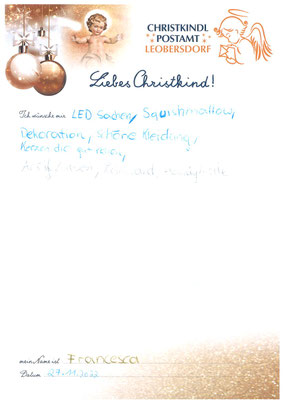 CHRISTKINDL
POSTAMT
LEOBERSDORF
Liebes Christkind!
Ich wünsche mir LED Sachen, Squishmallow,
Dekoration, schöne Kleidung,
Kerzen die gut
mein Name ist Francesca
Datum 27.11.2022